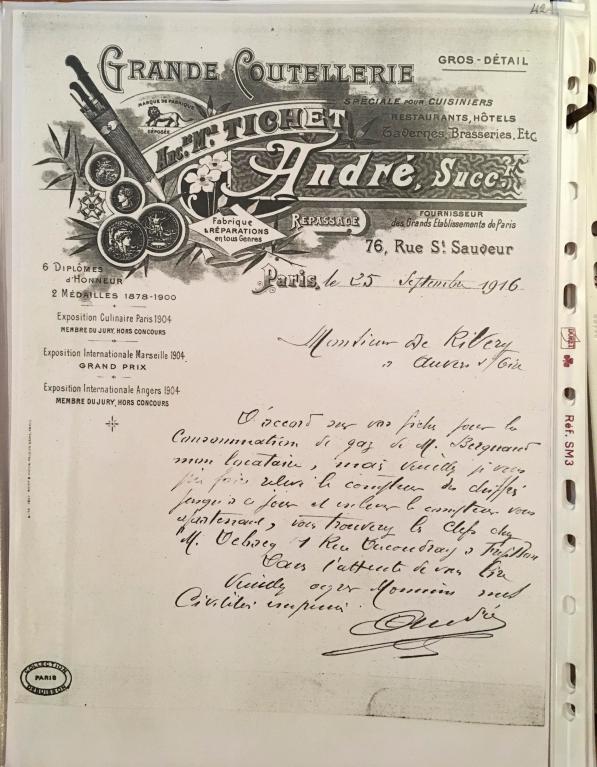 42
GRANDE COUTELLERIE
GROS - DÉTAIL
MARQUE DE FABRIQUE
DÉPOSÉE
SPÉCIALE POUR CUISINIERS
RESTAURANTS, HÔTELS
Tavernes, Brasseries, Etc
ANC.NE M.ON TICHET
André, Succ.R
Fabrique
& RÉPARATIONS
en tous Genres
REPASSAGE
FOURNISSEUR
des Grands Etablissements de Paris
76, Rue St Sauveur
6 DIPLÔMES
D'HONNEUR
2 MÉDAILLES 1878-1900
Exposition Culinaire Paris 1904
MEMBRE DU JURY, HORS CONCOURS
Exposition Internationale Marseille 1904
GRAND PRIX
Exposition Internationale Angers 1904
MEMBRE DU JURY, HORS CONCOURS
Paris, le 25 Septembre 1916
Monsieur De Ribery
à Auvers s/Oise
D'accord sur vos fiche pour la
Consommation de gaz de M. Bergnaud
mon locataire, mais veuillez je vous
prie faire relever le compteur des chiffres
jusqu'à ce jour et enlever le compteur vous
apartenant, vous trouverez les clefs chez
M. 1 Rue à
Dans l'attente de vous lire
Veuillez agréer Monsieur mes
Civilités
André
COLLECTION
PARIS
Réf. SM3